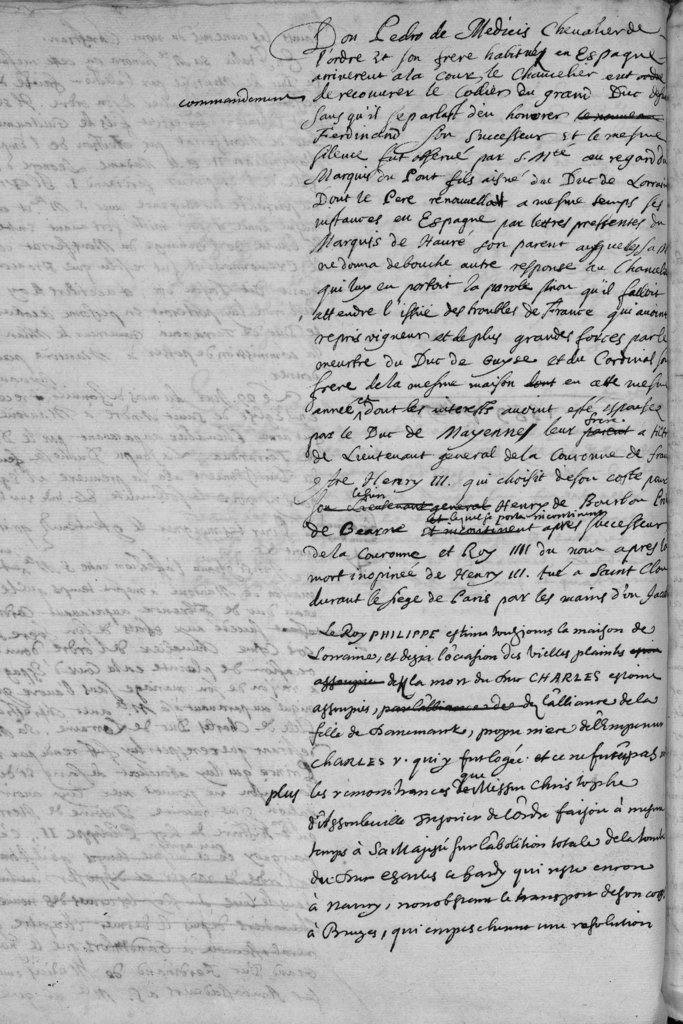 Don Pedro de Medicis Chevalier de
l'ordre et son frere habitués en Espagne
arriverent a la cour, le Chancelier eut ordre
commandement
de recouvrer le Collier du grand Duc
sans qu'il se parlast d'en honorer le nouveau
Ferdinand son successeur et le mesme
silence fut observé par S. Mté au regard du
Marquis du Pont fils aisné du Duc de Lorraine
Dont le Pere renouvellait a mesme temps ses
instances en Espagne par lettres pressentes du
Marquis de Hauré son parent auquel sa M
ne donna de bouche autre response au Chancelier
qui luy en portoit la parole sinon qu'il falloit
attendre l'issüe des troubles de France qui avoient
repris vigueur et de plus grandes forces par le
meurtre du Duc de Guyse et du Cardinal son
frere de la mesme maison dont en cette mesme
année et dont les interests avoient esté espousez
par le Duc de Mayennes leur parent frere a tiltre
de Lieutenant general de la Couronne de France
contre Henry III. qui choisit de son costé pour
son Lieutenant general le sien Henry de Bourbon Prince
de Bearne et incontinent et lequel se porta incontinent apres successeur
de la Couronne et Roy IIII du nom apres la
mort inopinée de Henry III. tué a Saint Clou
durant le siege de Paris par les mains d'un Jacobin
Le Roy PHILIPPE estima tousjours la maison de
Lorraine, et desira l'occasion des vielles plaintes
assoupies de la mort du Duc CHARLES estoient
assoupies, par l'alliance de de l'alliance de la
fille de Danemark, propre niece de l'Empereur
CHARLES V. qui y fut logée. et ce ne furent pas
plus
les remonstrances que Messire Christophe
d'Assonleville Tresorier de l'Ordre faisoit à mesme
temps à Sa Majesté sur l'abolition totale de la tombe
du Duc Charles le hardy qui reste encore
à Nancy, nonobstant le transport de son corps
à Bruges, qui empeschent une resolution